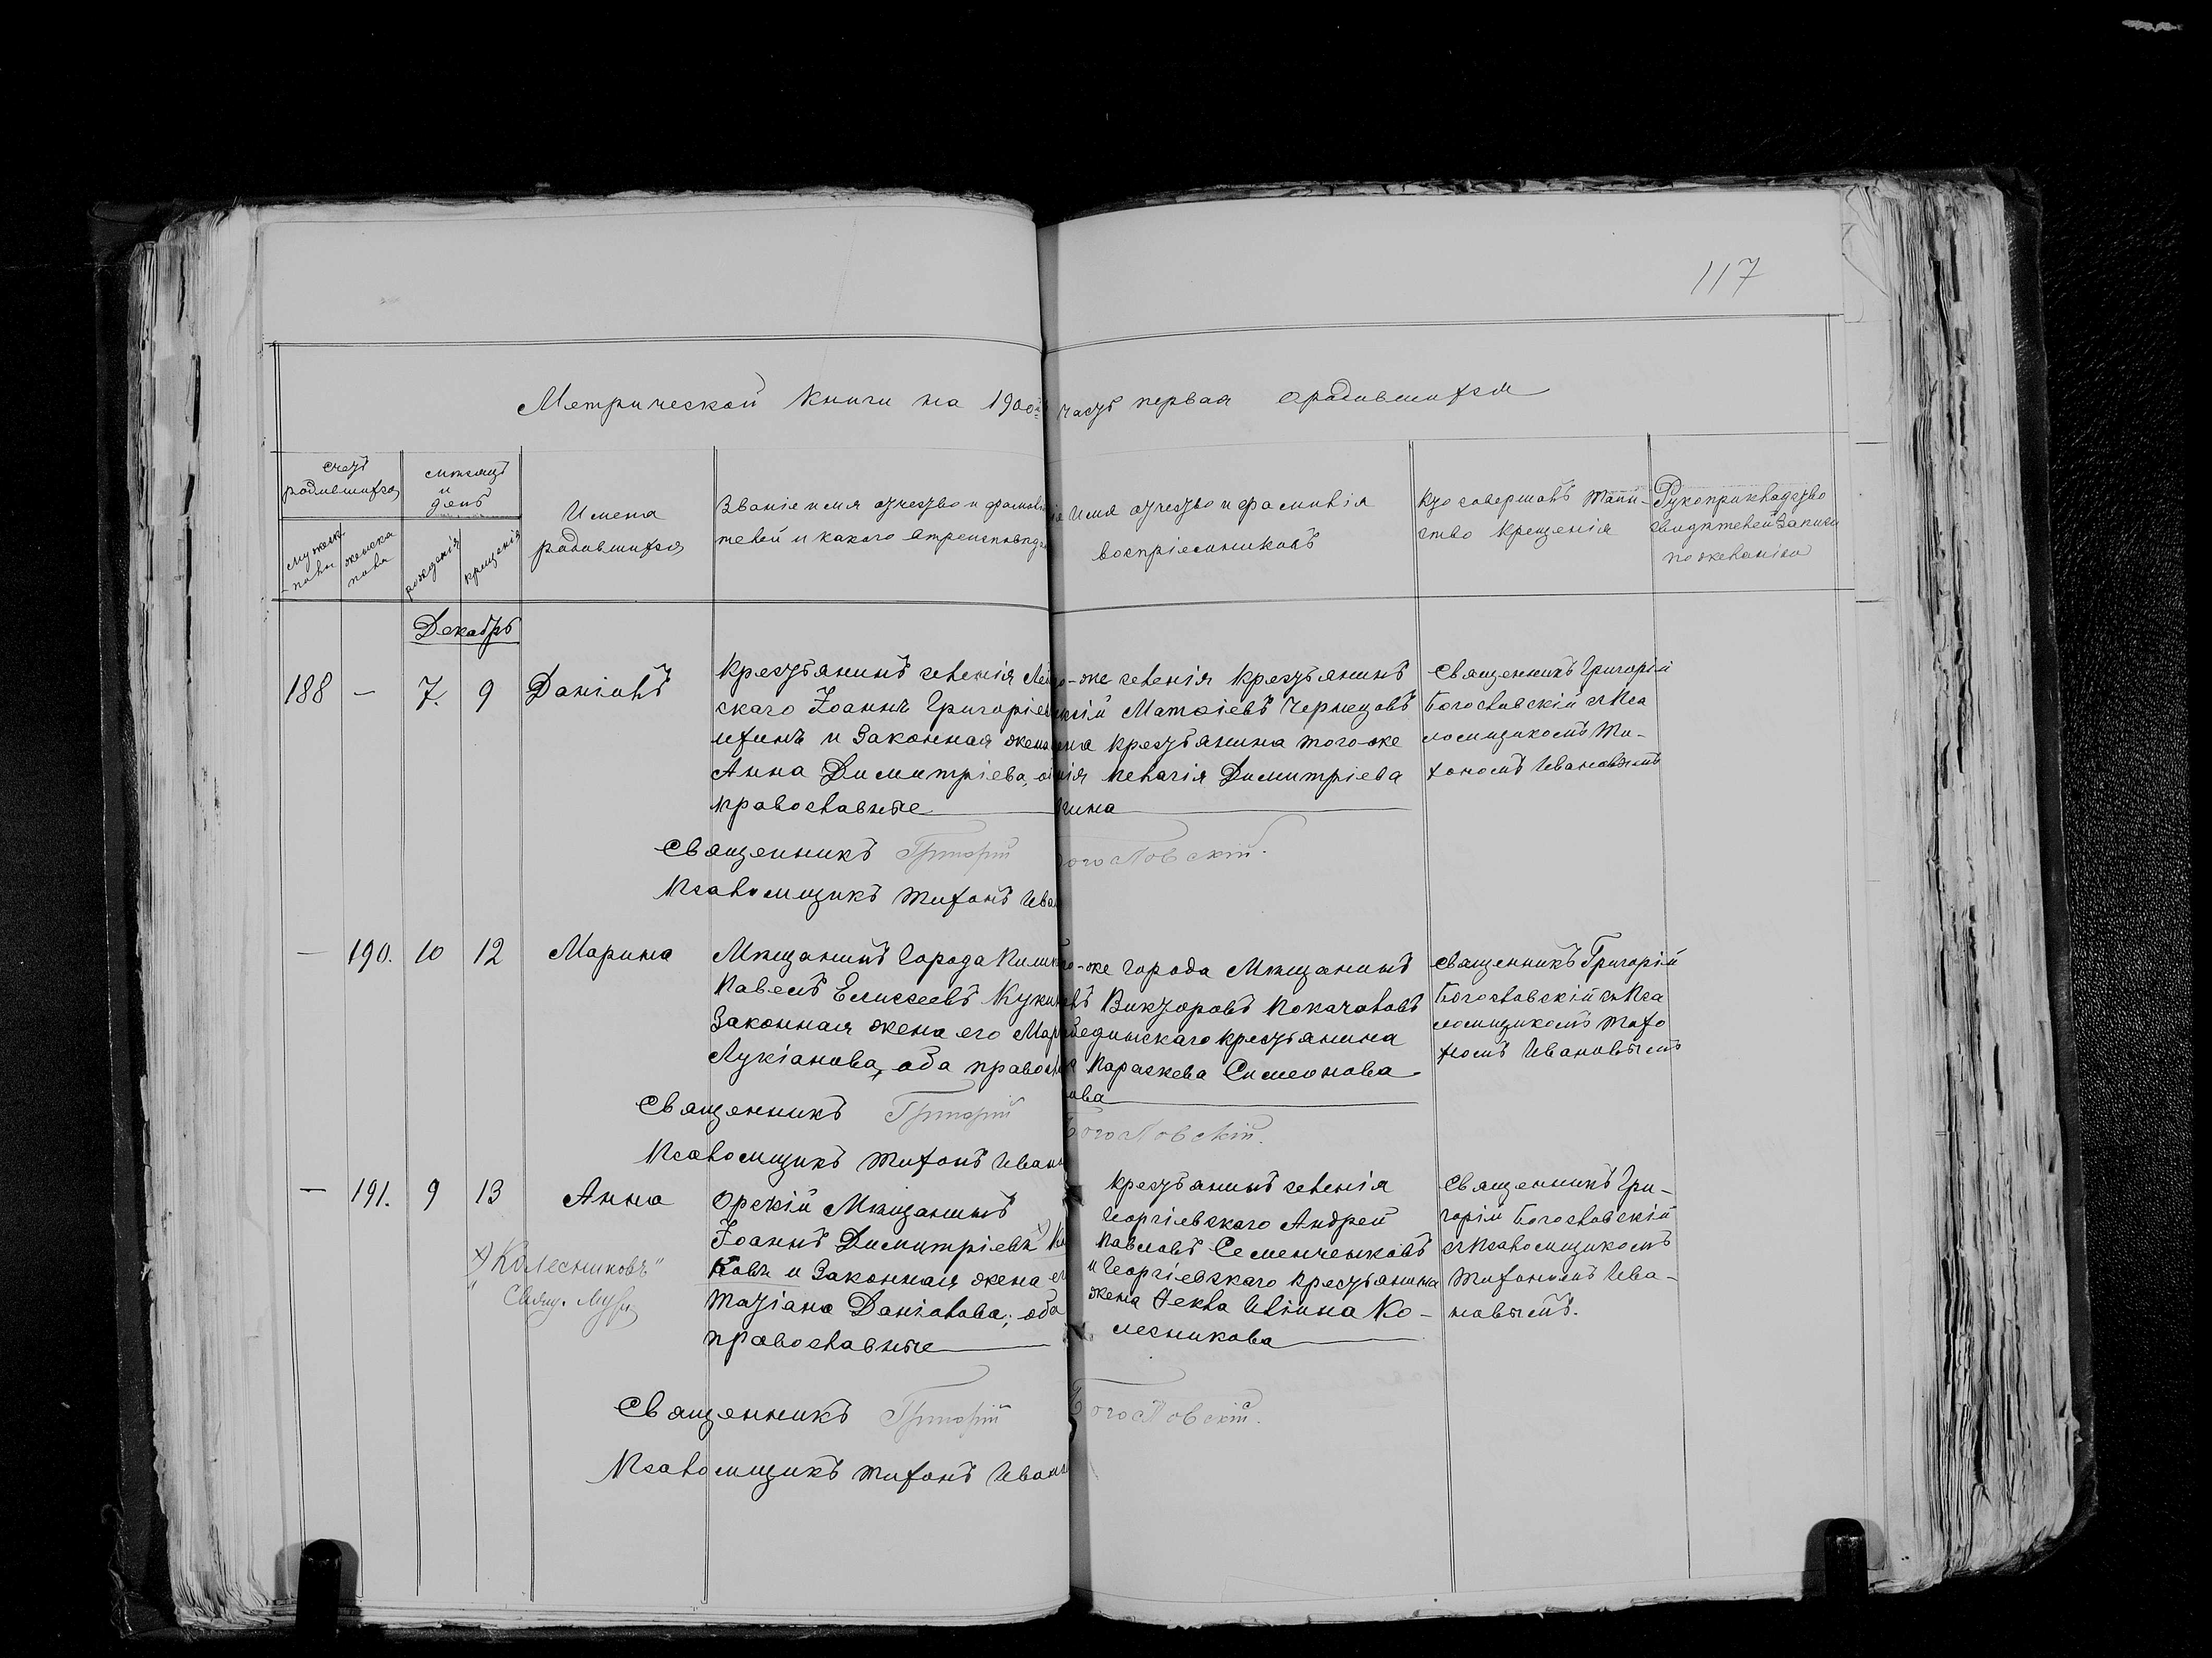 117
Метрической книги на 1900й часть первая о родившихся
счетъ родившихся
мѣсяцъ и день
Имена родившихся
Званіе имя отчество и фамилія
телей и какого вѣроисповѣд
имя отчество и фамилія воспріемниковъ
Кто совершалъ таин-
ство крещенія
Рукоприкладство
свидѣтелей записи
по желанію
мужеск пола
женска пола
рожденія
крещенія
Декабрь
188 — 7. 9 Даніилъ
Крестьянинъ селенія
скаго Іоаннъ Григоріев
и законная жена
Анна Димитріева,
православные
о-же селенія крестьянинъ
Матѳіевъ Чернецовъ
крестьянина того-же
Пелагія Димитріева
кина
Священникъ Григорій
Богословскій съ Пса
ломщикомъ Ти-
хономъ Ивановымъ
Священникъ Григорій Богословскій.
Псаломщикъ Тихонъ Иван
— 190. 10 12 Марина
Мѣщанинъ города
Павелъ Елисеевъ
законная жена его Мар
Лукіанова, оба правосл
о-же города Мѣщанинъ
Викторовъ Покачаловъ
крестьянина
Параскева Симеонова
ова
Священникъ Григорій
Богословскій съ Пса
ломщикомъ Тихо
номъ Ивановымъ
Священникъ Григорій Богословскій.
Псаломщикъ Тихонъ Иван
— 191. 9 13 Анна
Орскій Мѣщанинъ
Іоаннъ Димитріевъ х) Ко
ковъ и законная жена ег
Татіана Даніилова; оба
православные
х) "Колесниковъ"
Свящ.
крестьянинъ селенія
Георгіевскаго Андрей
Павловъ Семенченковъ
и Георгіевскаго крестьянина
жена Ѳекла Иліина Ко-
лесникова
Священникъ Гри-
горій Богословскій
съ Псаломщикомъ
Тихономъ Ива-
новымъ.
Священникъ Григорій Богословскій.
Псаломщикъ Тихонъ Иван